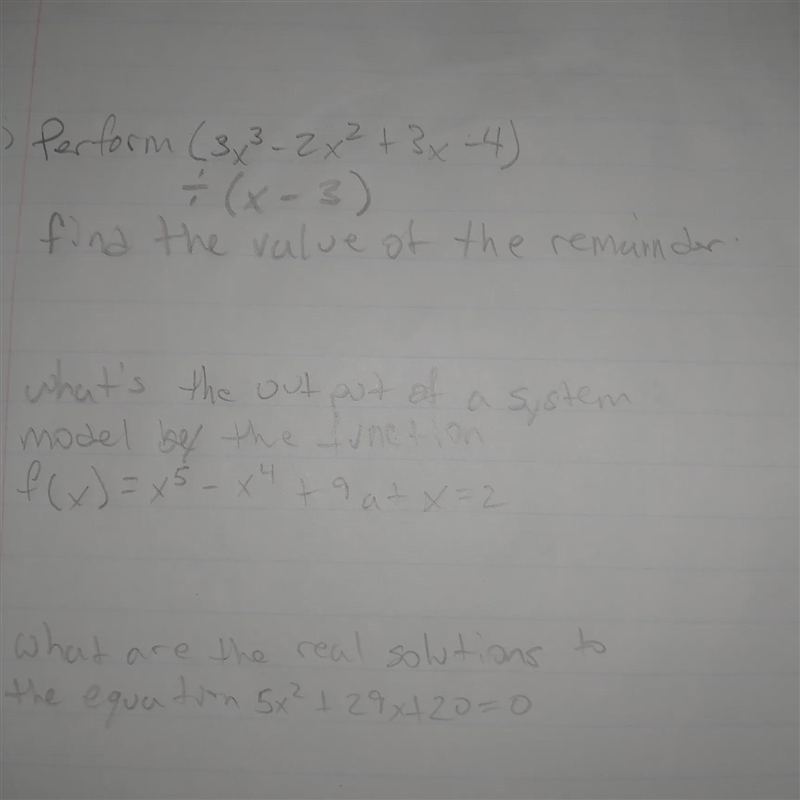 ) Perform (3x³ - 2x² + 3x - 4)
÷ (x - 3)
find the value of the remainder.
what's the output of a system
model by the function
f(x) = x⁵ - x⁴ + 9 at x = 2
what are the real solutions to
the equation 5x² + 29x + 20 = 0